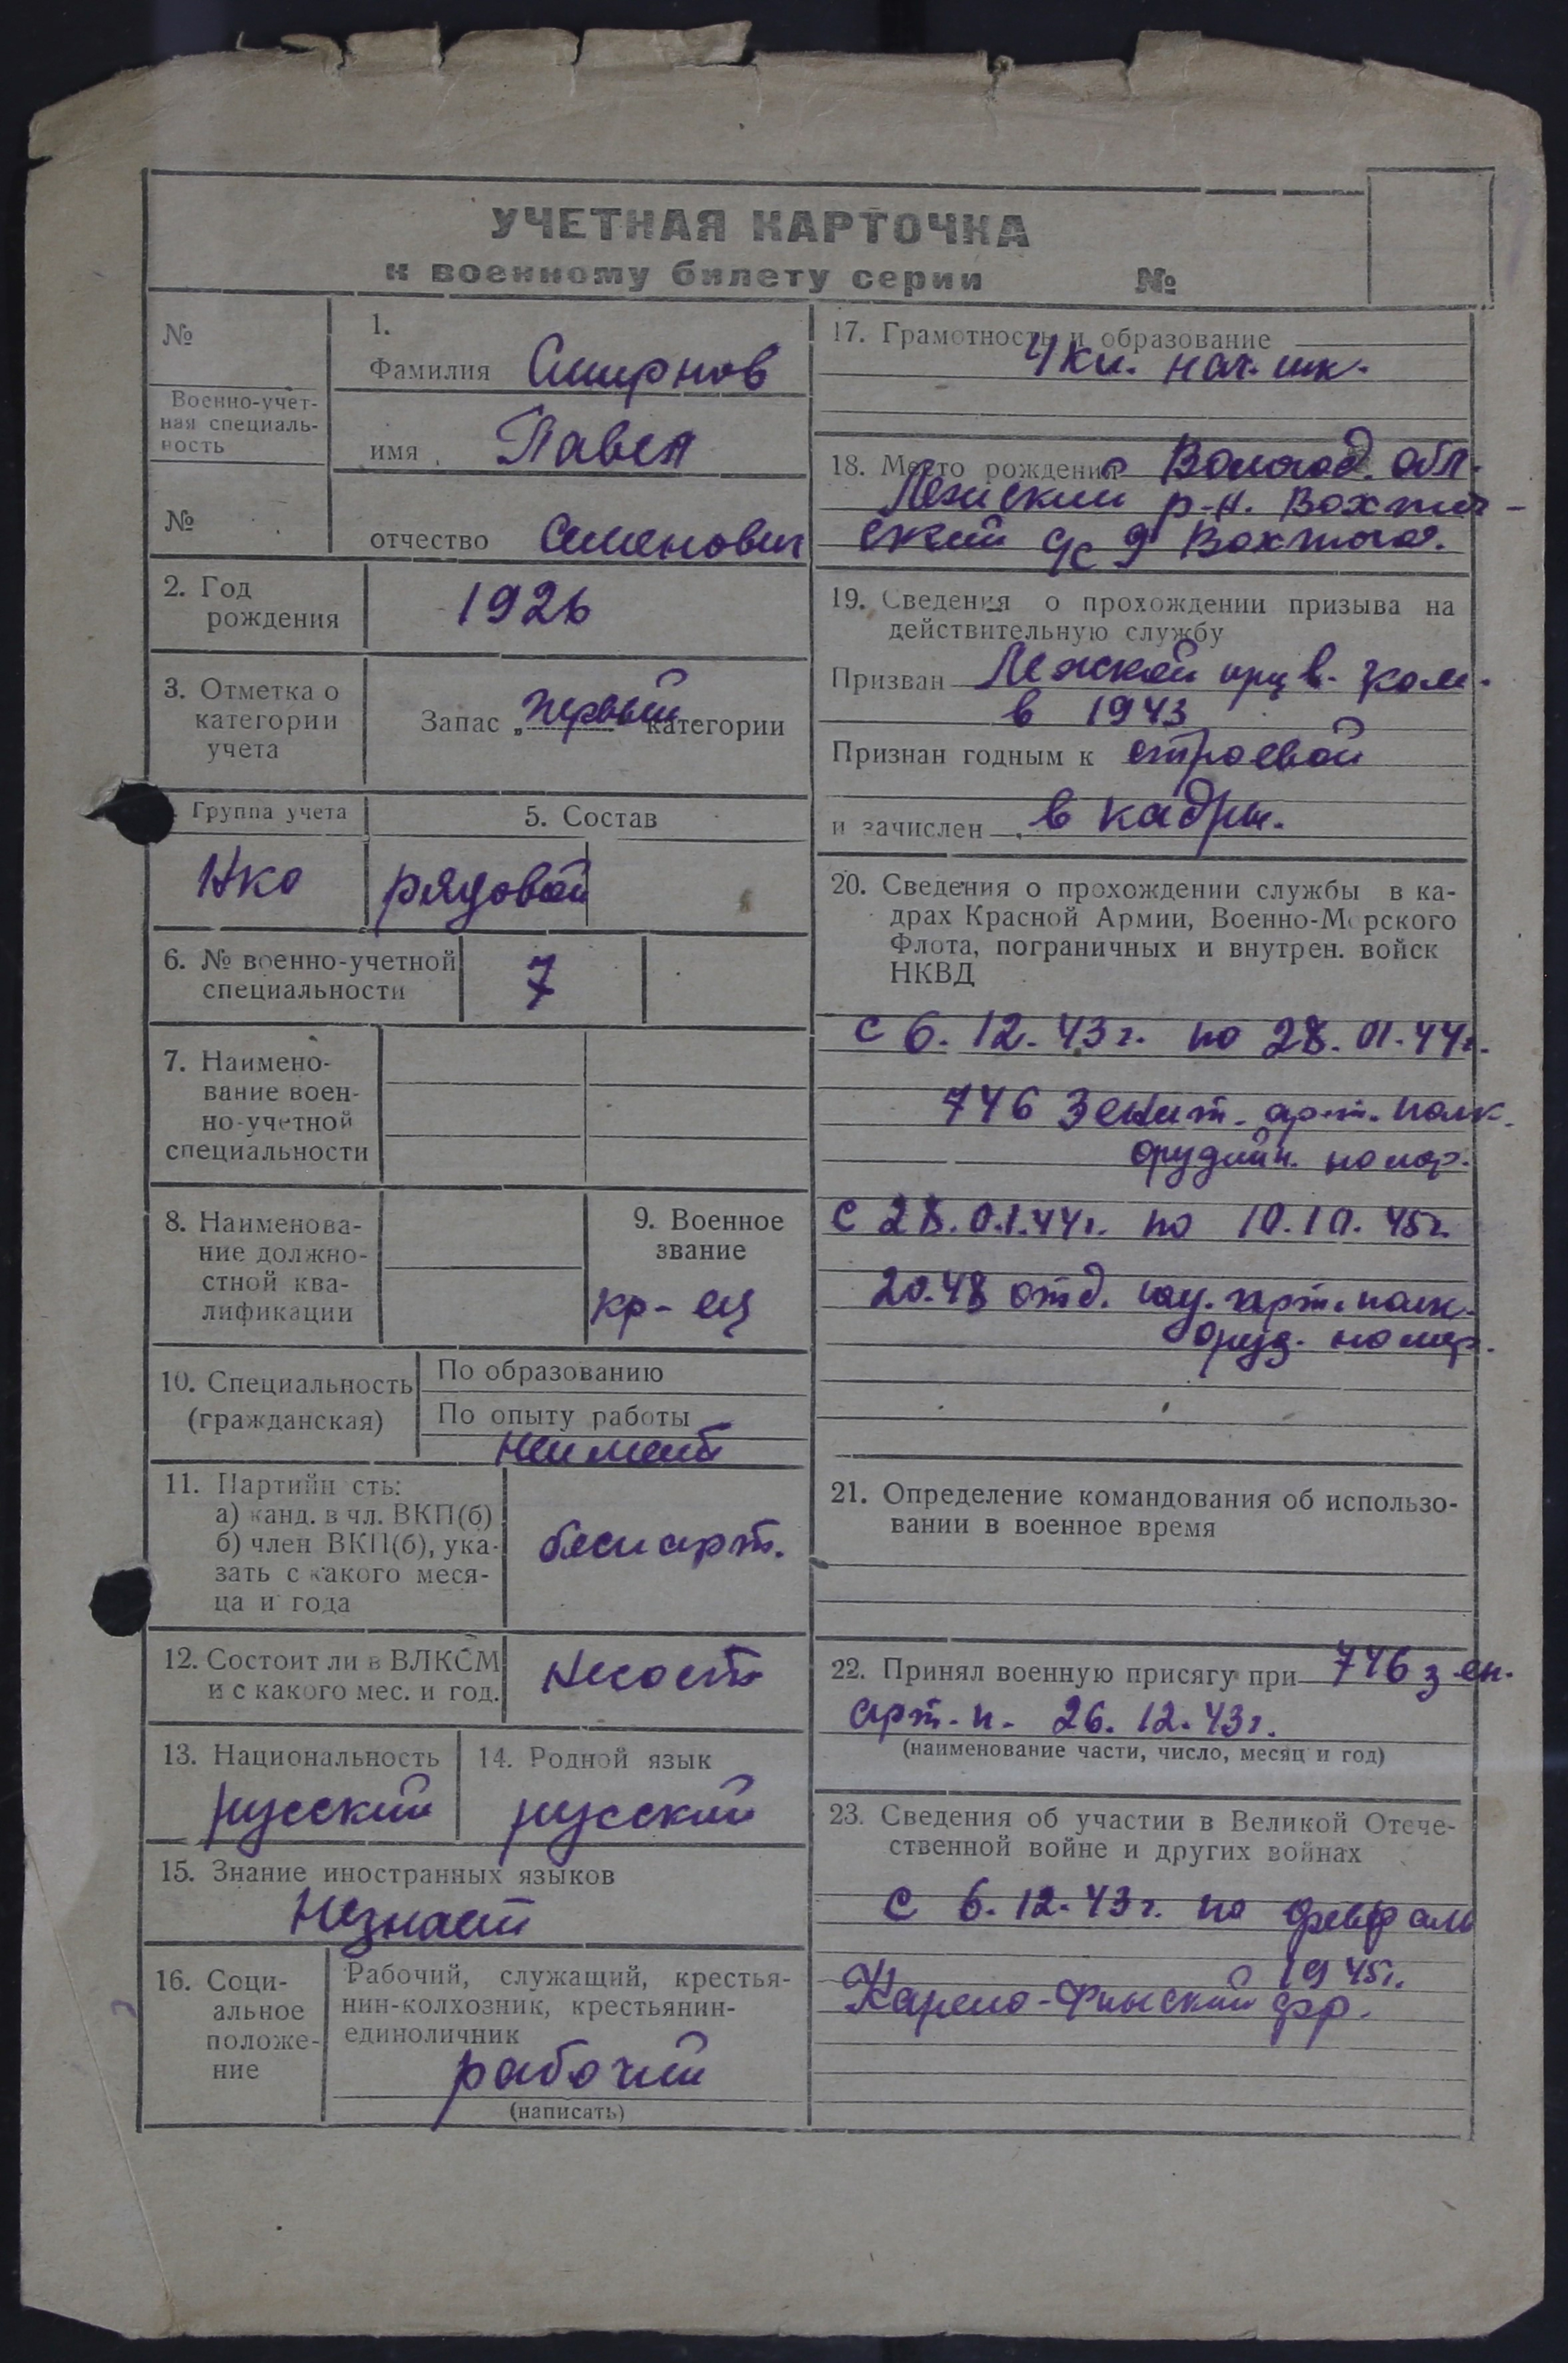 УЧЕТНАЯ КАРТОЧКА
к военному билету серии №
№
Военно-учет-
ная специаль-
ность
№
1.
Фамилия Смирнов
имя Павел
отчество Семенович
2. Год
рождения
1926
3. Отметка о
категории
учета
Запас „первой категории
Группа учета
НКО
5. Состав
рядовой
6. № военно-учетной
специальности
7
7. Наимено-
вание воен-
но-учетной
специальности
8. Наименова-
ние должно-
стной ква-
лификации
9. Военное
звание
кр-ец
10. Специальность
(гражданская)
По образованию
По опыту работы
неимеет
11. Партийн сть:
а) канд. в чл. ВКП(б)
б) член ВКП(б), ука-
зать с какого меся-
ца и года
беспарт.
12. Состоит ли в ВЛКСМ
и с какого мес. и год.
несост.
13. Национальность
русский
14. Родной язык
русский
15. Знание иностранных языков
Незнает
16. Соци-
альное
положе-
ние
Рабочий, служащий, крестья-
нин-колхозник, крестьянин-
единоличник
рабочий
(написать)
17. Грамотность и образование
4 кл. нач. шк.
18. Место рождения Вологод. обл.
Лежский р-н. Вохтог-
ский с/с д Вохтога.
19. Сведения о прохождении призыва на
действительную службу
Призван Лежской в. ком.
в 1943
Признан годным к строевой
и зачислен в кадры.
20. Сведения о прохождении службы в ка-
драх Красной Армии, Военно-Морского
Флота, пограничных и внутрен. войск
НКВД
с 6.12.43г. по 28.01.44г.
746 Зенит. арт. полк.
орудийн. номер.
с 28.01.44г. по 10.10.45г.
2048 отд. арт. полк.
оруд. номер.
21. Определение командования об использо-
вании в военное время
22. Принял военную присягу при 746 зен.
арт. п. 26.12.43г.
(наименование части, число, месяц и год)
23. Сведения об участии в Великой Отече-
ственной войне и других войнах
с 6.12.43г. по февраль
1945г.
Карело-Финский фр.